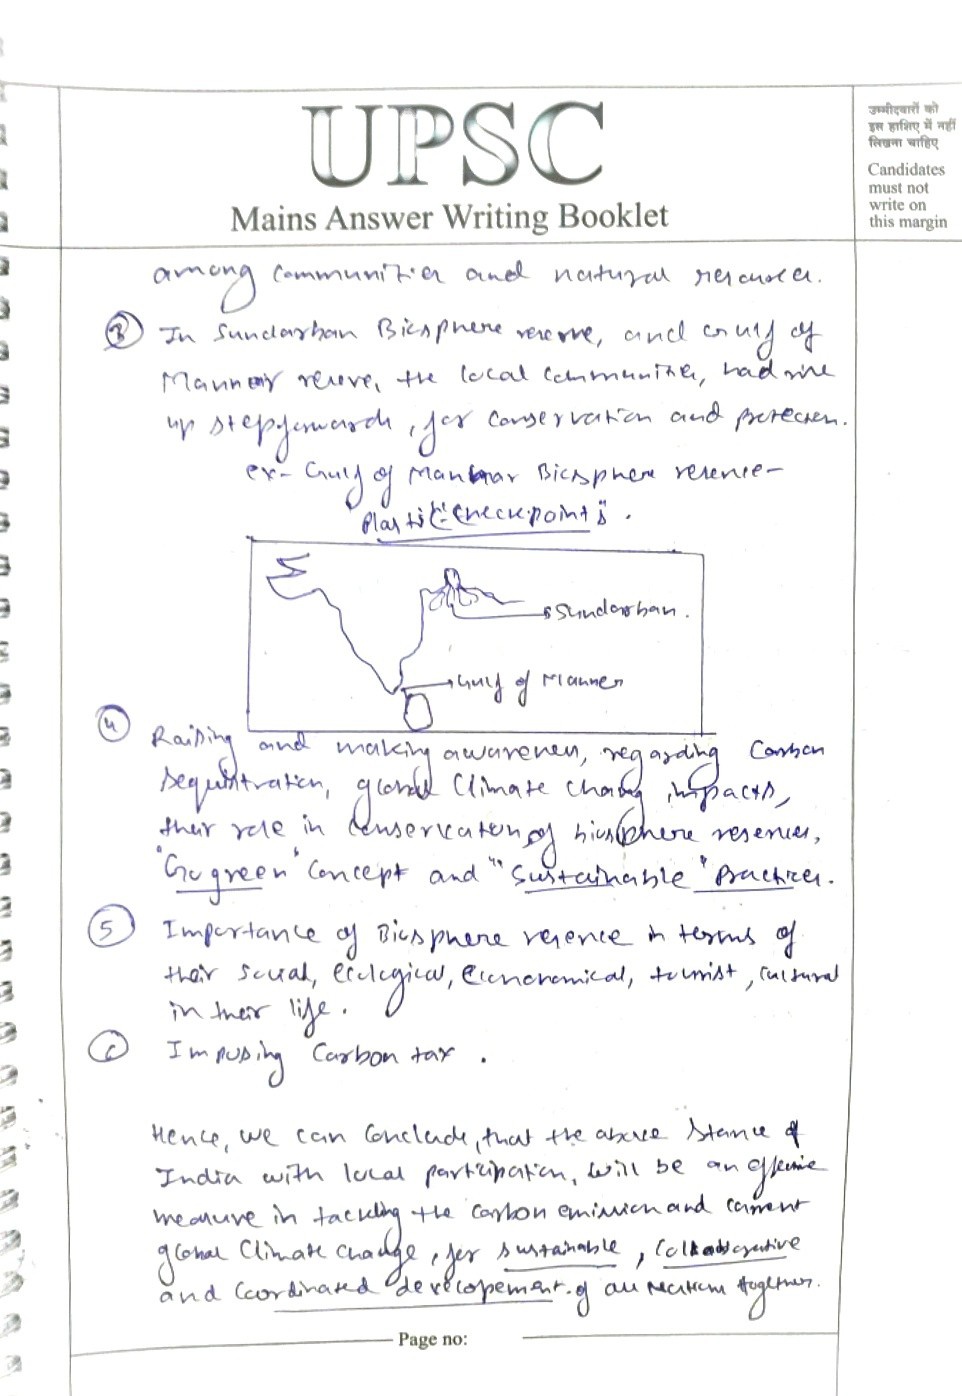 UPSC
Mains Answer Writing Booklet
उम्मीदवारों को
इस हाशिए में नहीं
लिखना चाहिए
Candidates
must not
write on
this margin
among communities and natural resources.
③ In Sundarban Biosphere reserve, and Gulf of
Mannar reserve, the local communities, had rise
up stepforwards, for conservation and protection.
ex- Gulf of Mannar Biosphere reserve-
"Plastic-checkpoints".
Sundarban.
Gulf of Manner
④ Raising and making awareness, regarding Carbon
sequestration, global Climate change impacts,
their role in conservation of biosphere reserves,
"Go green" concept and "Sustainable" Practices.
⑤ Importance of Biosphere reserve in terms of
their social, ecological, economomical, tourist, cultural
in their life.
⑥ Imposing Carbon tax.
Hence, we can conclude, that the above stance of
India with local participation, will be an effective
measure in tackling the carbon emission and current
global Climate change, for sustainable, collaborative
and Coordinated developement of all nation together.
Page no: